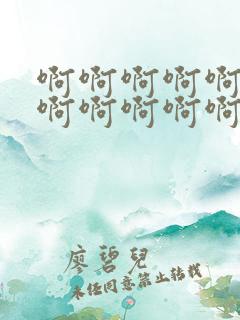 啊啊啊啊啊
啊啊啊啊啊
廖碧兒
未经同意禁止转载